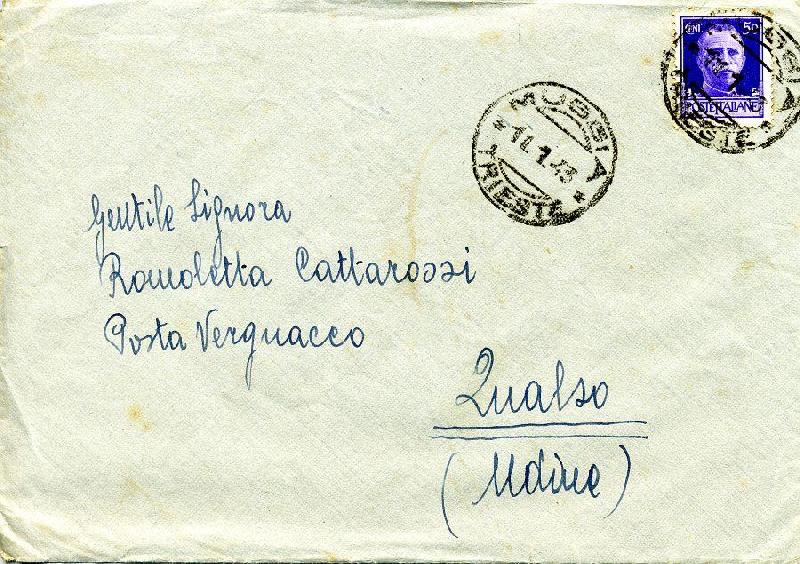 CENT 50
POSTE ITALIANE
MUGGIA
TRIESTE
MUGGIA
11.1.43
TRIESTE
Gentile Signora
Romoletta Cattarossi
Posta Vergnacco
Qualso
(Udine)